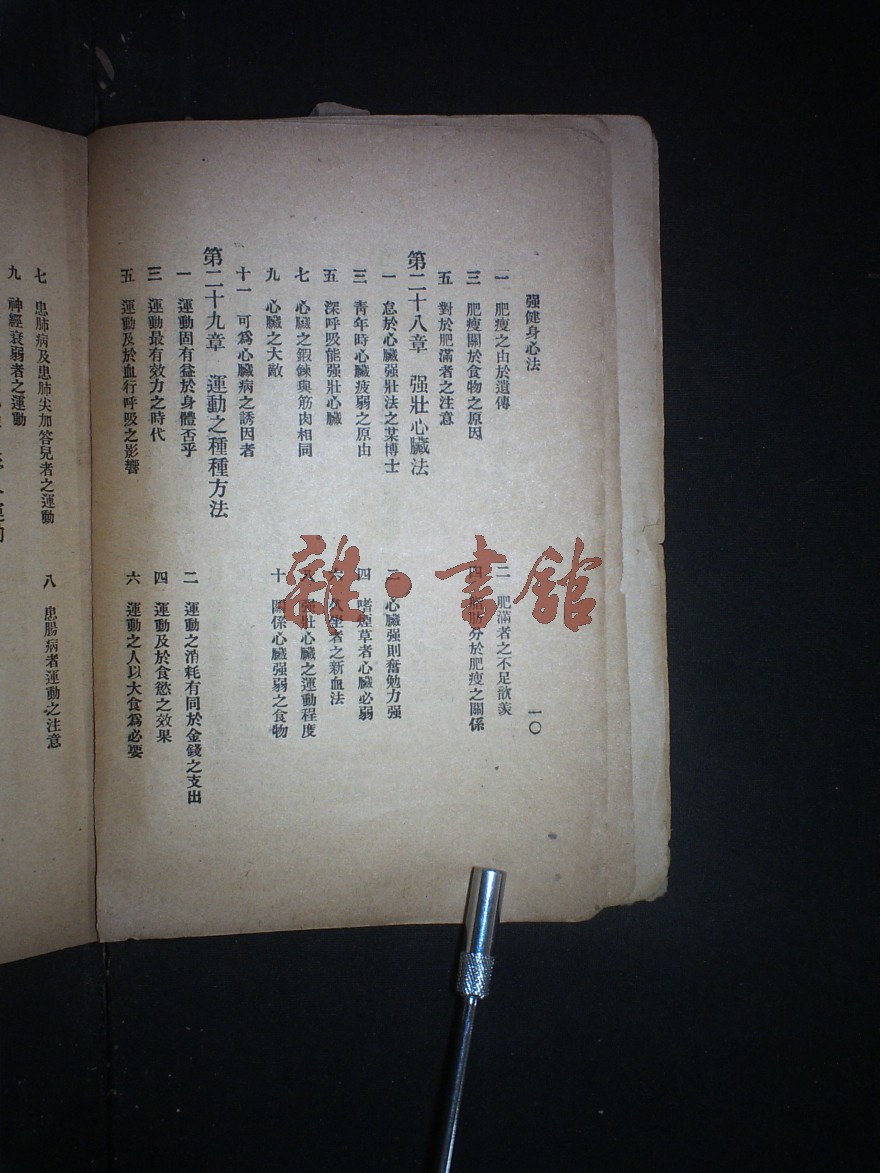 强健身心法
一〇
一 肥瘦之由於遺傳
二 肥滿者之不足歆羨
三 肥瘦關於食物之原因
四 脂肪分於肥瘦之關係
五 對於肥滿者之注意
第二十八章 强壯心臟法
一 怠於心臟强壯法之某博士
二 心臟强則奮勉力强
三 靑年時心臟疲弱之原由
四 嗜煙草者心臟必弱
五 深呼吸能强壯心臟
六 久坐者之新血法
七 心臟之鍛鍊與筋肉相同
八 强壯心臟之運動程度
九 心臟之大敵
十 關係心臟强弱之食物
十一 可爲心臟病之誘因者
第二十九章 運動之種種方法
一 運動固有益於身體否乎
二 運動之消耗有同於金錢之支出
三 運動最有效力之時代
四 運動及於食慾之效果
五 運動及於血行呼吸之影響
六 運動之人以大食爲必要
七 患肺病及患肺尖加答兒者之運動
八 患腸病者運動之注意
九 神經衰弱者之運動
雜·書館